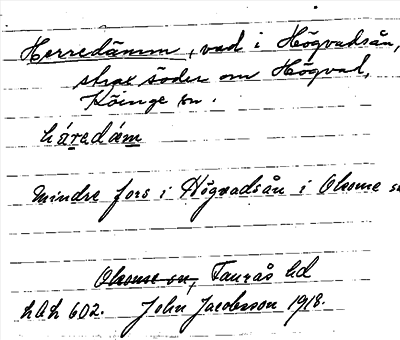 Herredämm, vad i Högvadsån,
strax söder om Högvad,
Köinge sn.
häredám
Mindre fors i Högvadsån i Okome sn
Okome sn, Faurås hd
hAh 602. John Jacobsson 1918.